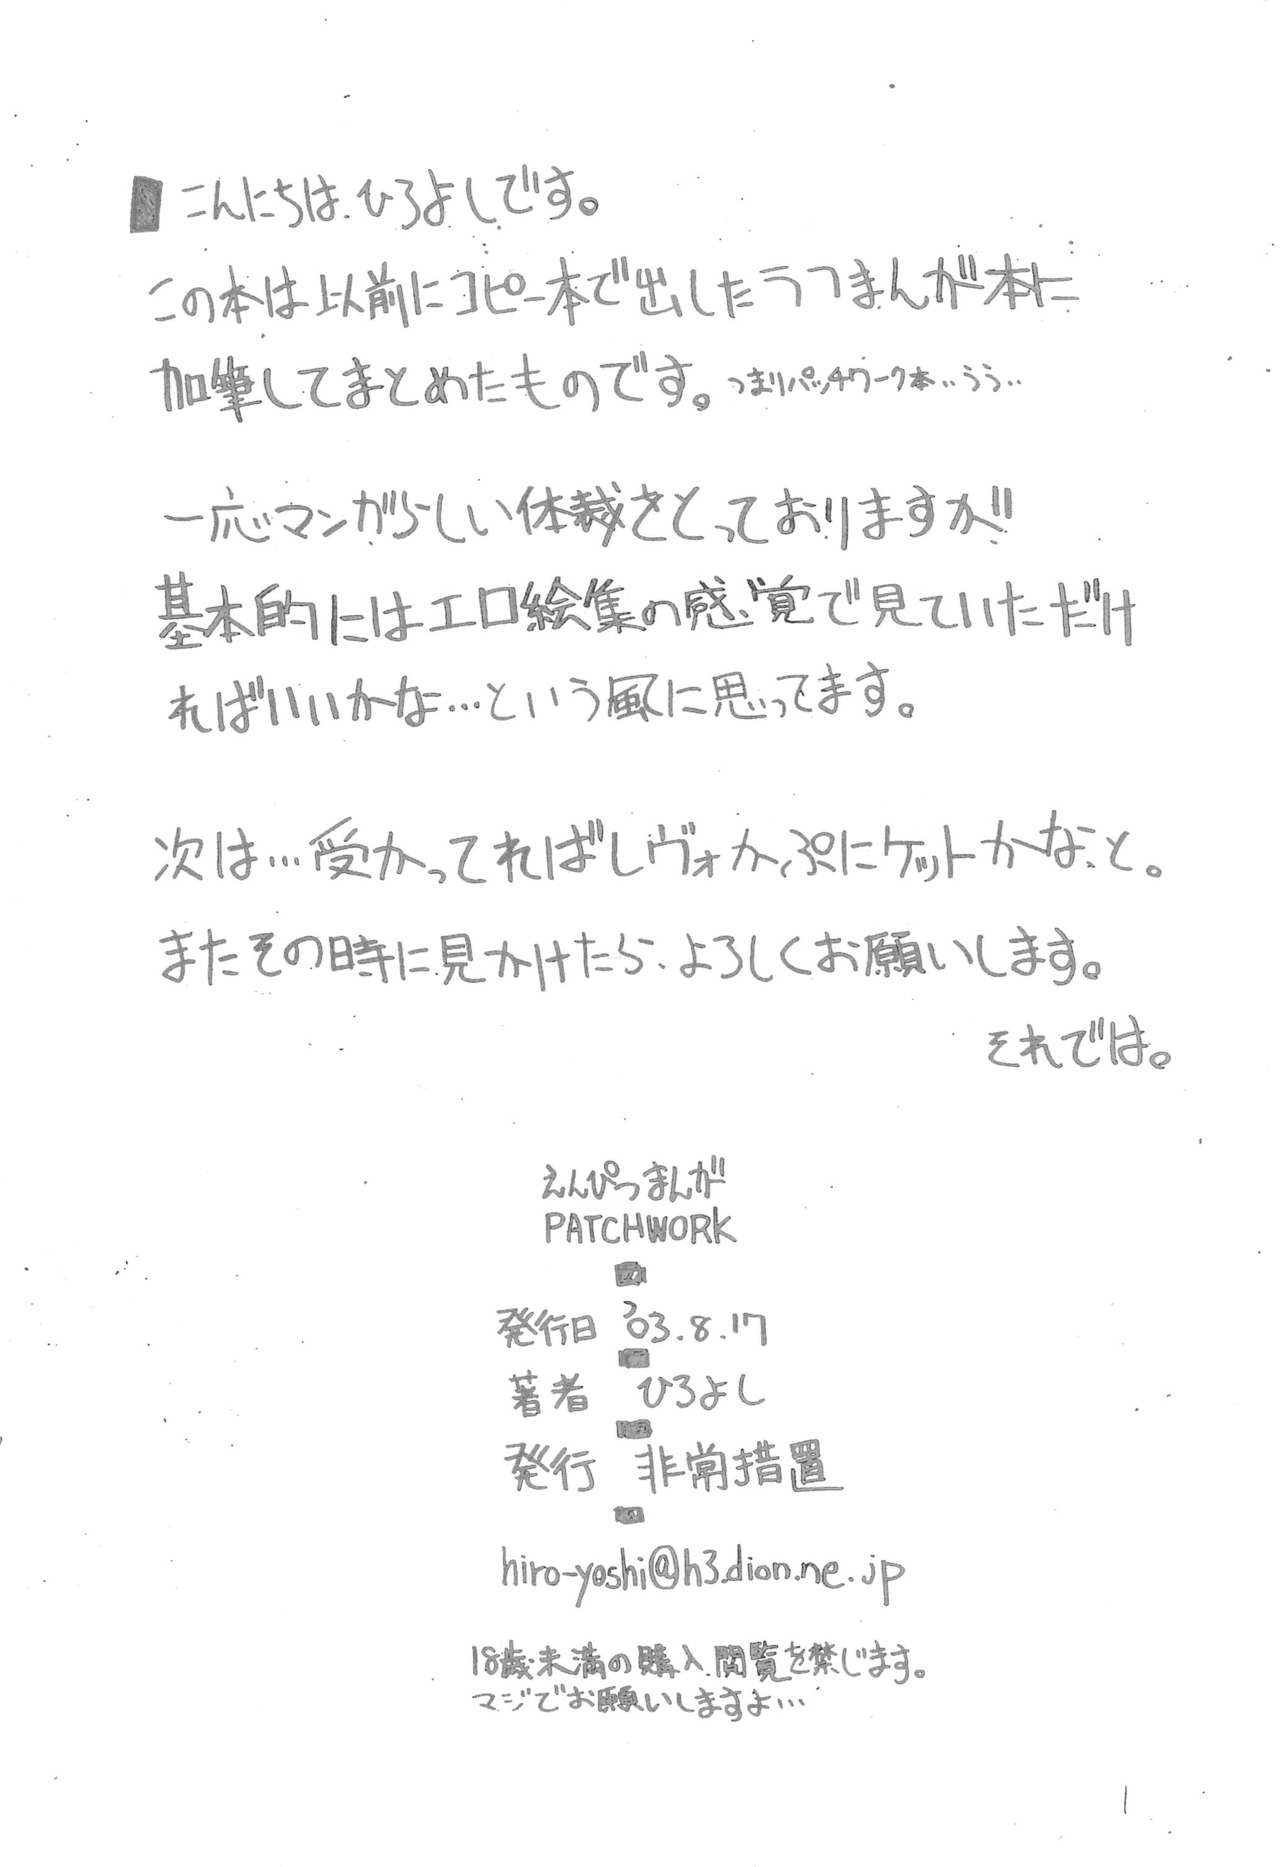 こんにちは、ひろよしです。
この本は以前にコピー本で出したラフまんが本に
加筆してまとめたものです。つまりパッチワーク本‥うう‥
一応マンガらしい体裁をとっておりますが
基本的にはエロ絵集の感覚で見ていただけ
ればいいかな…という風に思ってます。
次は…受かってればレヴォか、ぷにケットかな、と。
またその時に見かけたら、よろしくお願いします。
それでは。
えんぴつまんが
PATCHWORK
発行日 '03.8.17
著者 ひろよし
発行 非常措置
hiro-yoshi@h3.dion.ne.jp
18歳未満の購入、閲覧を禁じます。
マジでお願いしますよ…
1